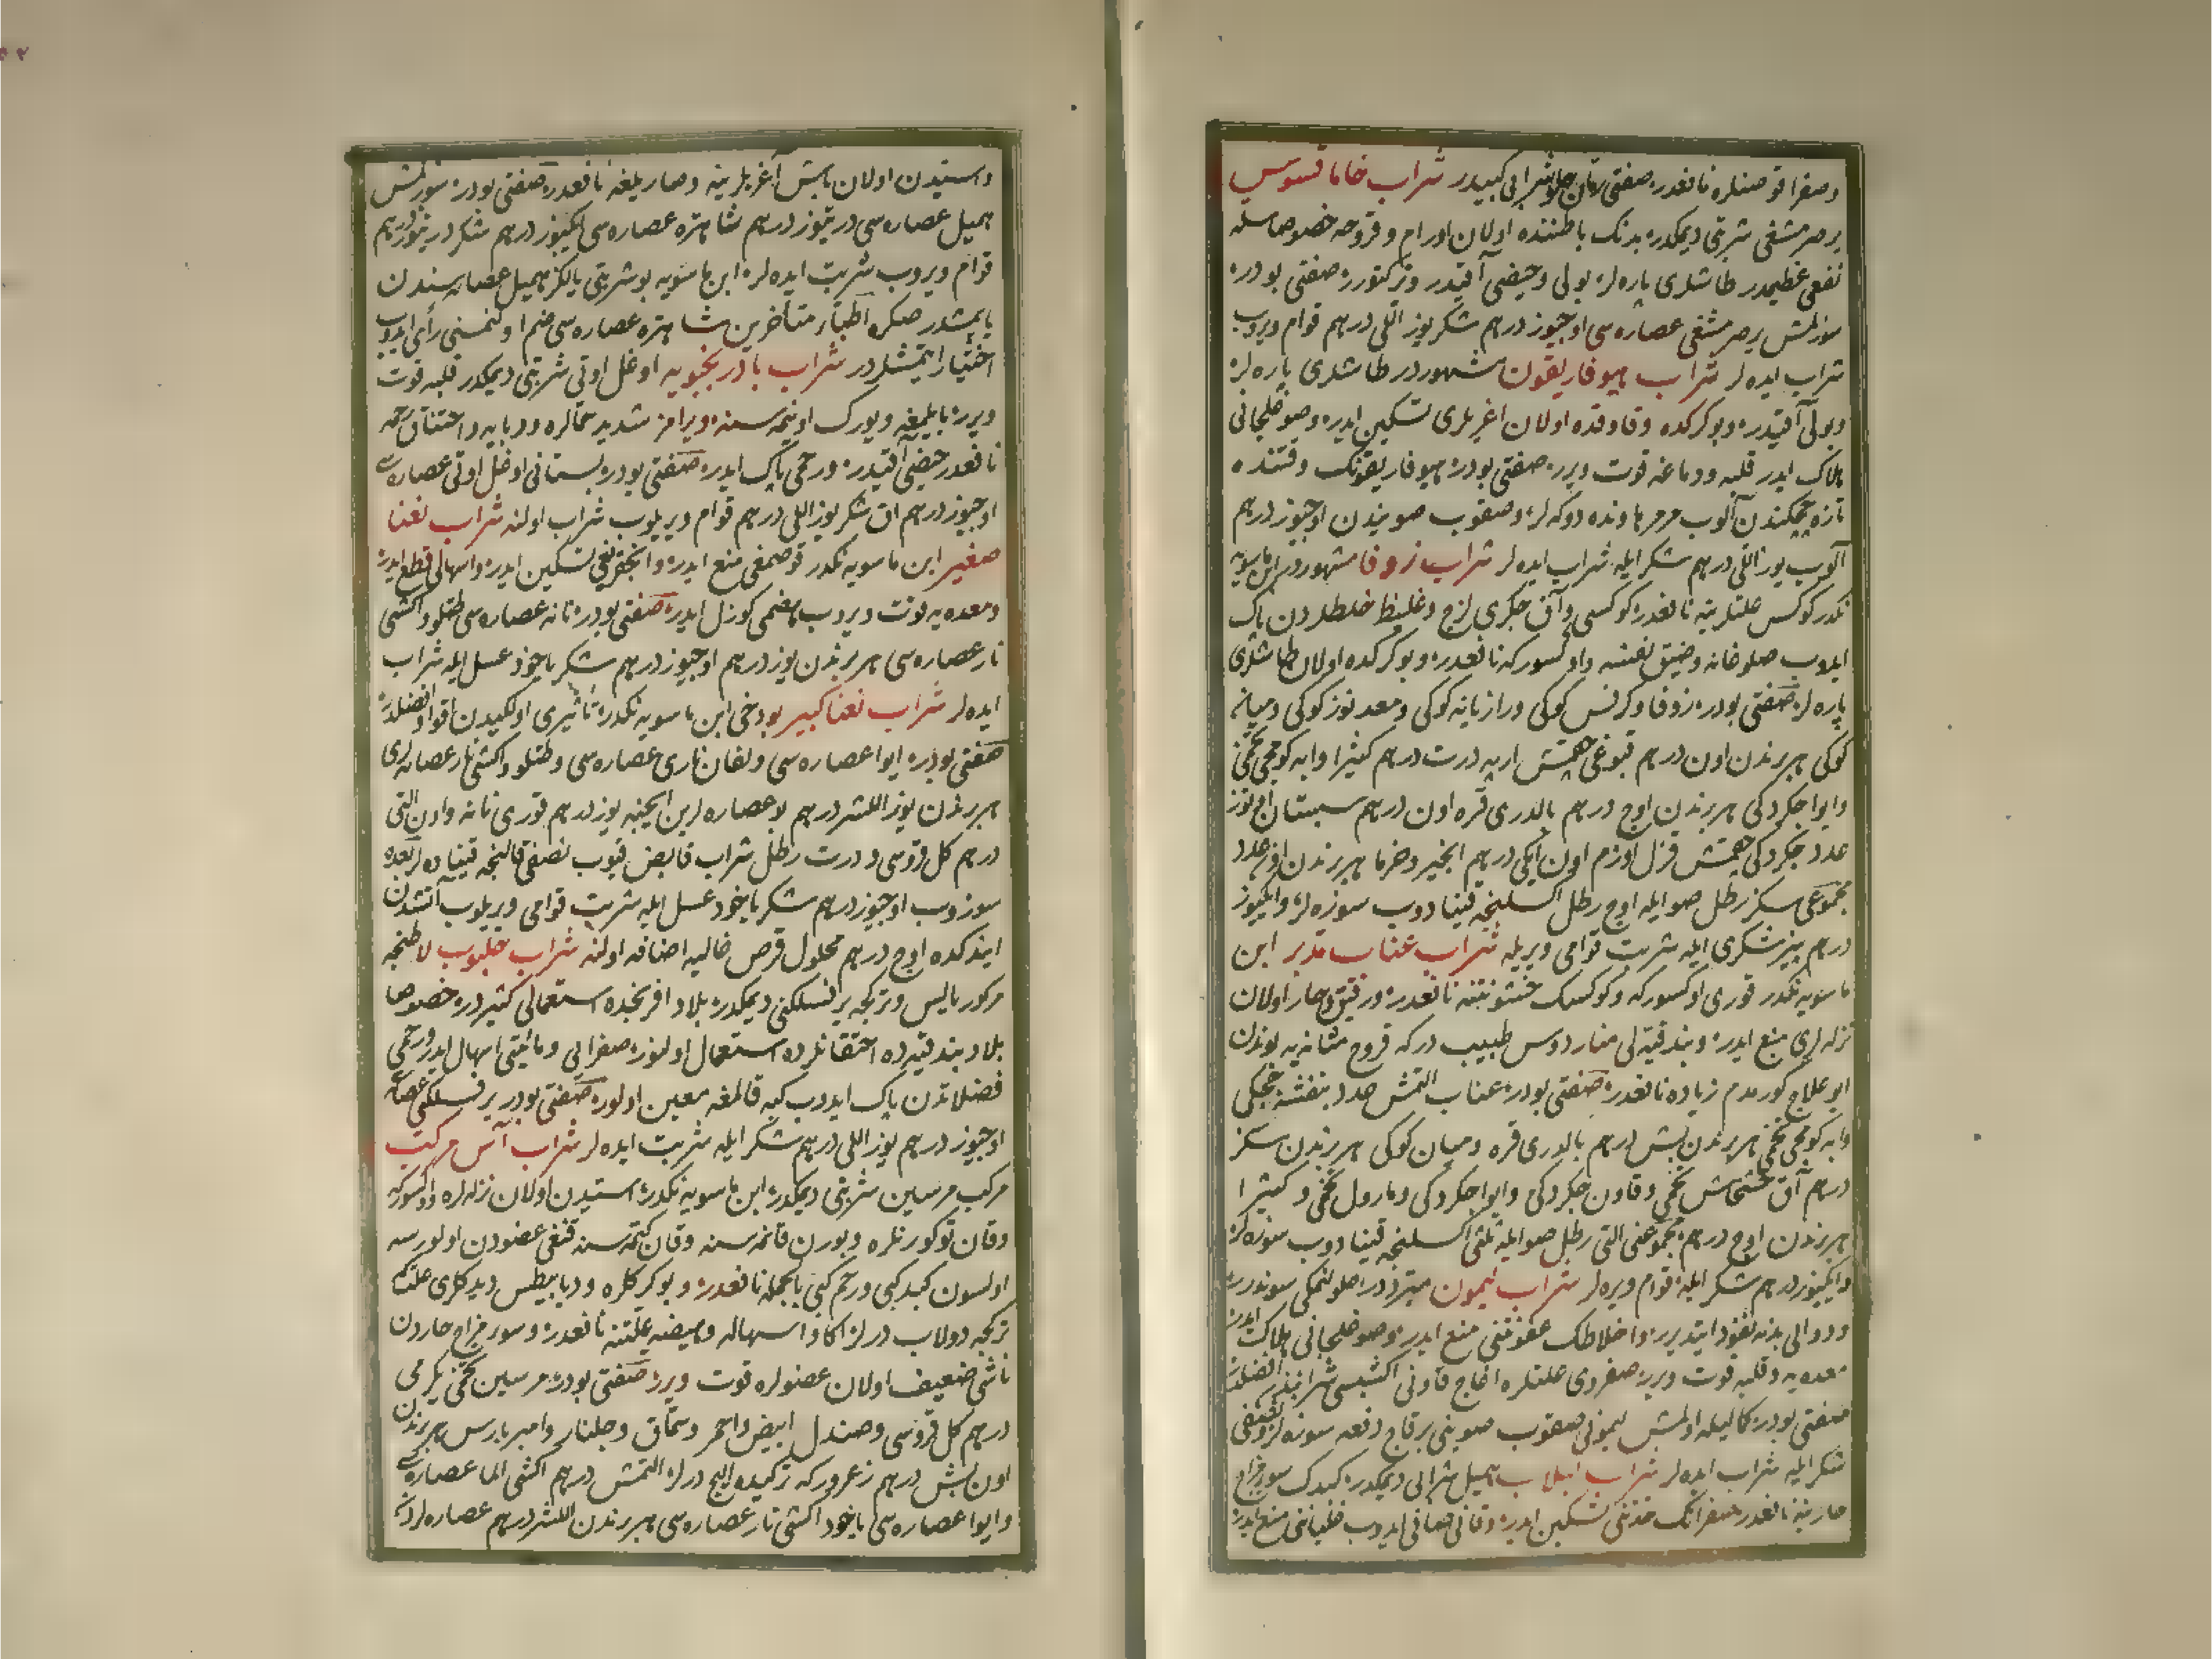 وصفرا قوصنلره نافعدر صفتی شراب خاماقسوس
یر صرمشغی شربتی دیمکدر بدنک باطننده اولان اورام و قروحه خصوصا سله
نفعی عظیمدر طاشلری پاره لر بولی وحیضی آقیدر صفتی بودر
سوزلمش یر صرمشغی عصاره سی اوچیوز درهم شکر یوز اللی درهم قوام ویروب
شراب ایده لر شراب هیوفاریقون مشهوردر طاشلری پاره لر
وبولی آقیدر وبوکرکده وقاوقده اولان اغریلری تسکین ایدر وصوغلجانی
هلاک ایدر قلبه ودماغه قوت ویرر صفتی بودر هیوفاریقونک وقتنده
تازه چیچکندن آلوب مرمر هاونده دوکه لر وصقوب صویندن اوچیوز درهم
آلوب یوز اللی درهم شکر ایله شراب ایده لر شراب زوفا مشهوردر ابن ماسویه
دیر کوکس علتلرینه نافعدر کوکسی وآق جکری لزج وغلیظ خلطلردن پاک
ایدوب صلوغانه وضیق نفسه واوکسورکه نافعدر وبوکرکده اولان طاشلری
پاره لر صفتی بودر زوفا وکرفس کوکی ورازیانه کوکی ومعدنوز کوکی ومیانه
کوکی هر برندن اون درهم قبوغی چقمش ارپه درت درهم کثیرا وابه کومجی تخمی
وایوا چکردکی هر برندن اوچ درهم بالدری قره اون درهم سبستان اوتوز
عدد چکردکی چقمش قزل اوزم اون ایکی درهم انجیر وخرما هر برندن اون عدد
مجموعی سکز رطل صو ایله اوچ رطل اکسلنجه قینادوب سوزه لر وایکیوز
درهم بیز شکری ایله شربت قوامی ویریله شراب عناب مدبر ابن
ماسویه دیر قوری اوکسورکه وکوکسک خشونتنه نافعدر ورقیق وحار اولان
نزله لری منع ایدر وبندقیه لی طبیب درکه قروح مثانه یه بوندن
ایو علاج کورمدم زیاده نافعدر صفتی بودر عناب التمش عدد بنفشه چیچکی
وابه کومجی تخمی هر برندن بش درهم بالدری قره ومیان کوکی هر برندن سکز
درهم آق خشخاش تخمی وقاون چکردکی وایوا چکردکی ومارول تخمی وکثیرا
هر برندن اوچ درهم مجموعنی التی رطل صو ایله ثلثی اکسلنجه قینادوب سوزه لر
وایکیوز درهم شکر ایله قوام ویره لر شراب لیمون
ودوالی بدنه نفوذ ایتدیرر واخلاطک عفونتنی منع ایدر وصوغلجانی هلاک ایدر
معده یه وقلبه قوت ویرر صفروی علتلره
صفتی بودر کمالیله اولمش لیمونی صقوب صوینی بر قاچ دفعه سوزه لر
شکر ایله شراب ایده لر شراب ابلاب همیل شرابی دیمکدر کبدک سوء مزاج
حارینه نافعدر صفرانک حدتنی تسکین ایدر وقانی صافی ایدوب غلیاننی منع ایدر
واستیدن اولان باش آغریلرینه وصاریلغه نافعدر صفتی بودر سوزلمش
همیل عصاره سی درتیوز درهم شاهتره عصاره سی ایکیوز درهم شکر درتیوز درهم
قوام ویروب شربت ایده لر ابن ماسویه بو شربتی یالکز همیل عصاره سندن
یاپمشدر صکره اطباء متأخرین شاهتره عصاره سی ضم اولنمسنی رأی ایدوب
اختیار ایتمشلردر شراب بادرنجبویه اوغل اوتی شربتی دیمکدر قلبه قوت
ویرر بایلمغه ویورک اوینمه سنه ویرامز شدید حمالره ووبایه واختناق رحمه
نافعدر حیضی آقیدر ورحمی پاک ایدر صفتی بودر بستانی اوغل اوتی عصاره سی
اوچیوز درهم آق شکر یوز اللی درهم قوام ویریلوب شراب اولنه شراب نعنا
صغیر ابن ماسویه دیر قوصمغی منع ایدر وانجقریغی تسکین ایدر واسهالی قطع ایدر
ومعده یه قوت ویروب هضمی کوزل ایدر صفتی بودر نانه عصاره سی طتلو واکشی
نار عصاره سی هر برندن یوز درهم اوچیوز درهم شکر یاخود عسل ایله شراب
ایده لر شراب نعنا کبیر بودخی ابن ماسویه نکدر تأثیری اولکیدن اقوا وافضلدر
صفتی بودر ایوا عصاره سی ولفان ناری عصاره سی وطتلو واکشی نار عصاره لری
هر برندن یوز اللیشر درهم بو عصاره لرین ایچنه یوز درهم قوری نانه واون التی
درهم کل قروسی ودرت رطل شراب قابض قیوب نصفی قالنجه قینادەلر بعده
سوزوب اوچیوز درهم شکر یاخود عسل ایله شربت قوامی ویریلوب آتشدن
ایندکده اوچ درهم محلول قرص غالیه اضافه اولنه شراب جلبوب لاطنجه
مرکوریالیس وترکجه یر فسلکنی دیمکدر بلاد افرنجده استعمالی کثیردر خصوصا
بلاد بندقیه ده احتقانلرده استعمال اولنور صفرایی ومائیتی اسهال ایدر ورحمی
فضلاتدن پاک ایدوب کبه قالمغه معین اولور صفتی بودر یر فسلکنی عصاره
اوچیوز درهم یوز اللی درهم شکر ایله شربت ایده لر شراب آس مرکب
مرکب مرسین شربتی دیمکدر ابن ماسویه نکدر استیدن اولان نزله لره واوکسورکه
وقان توکورنلره وبورن قانمه سنه وقان کتمه سنه قنغی عضودن اولورسه
اولسون کبد کبی ورحم کبی بالجمله نافعدر وبوکرکلره ودیابیطس دیدکلری علتکه
ترکجه دولاب درلر اکا واسهاله وهیضه علتنه نافعدر وسوء مزاج حاردن
ناشی ضعیف اولان عضولره قوت ویرر صفتی بودر مرسین تخمی یکرمی
درهم کل قروسی وصندل ابیض واحمر وسماق وجلنار وامبربارس هر برندن
اون بش درهم زعرور که ترکیده الیج درلر التمش درهم اکشی الما عصاره سی
وایوا عصاره سی یاخود اکشی نار عصاره سی هر برندن اللیشر درهم عصاره لردن